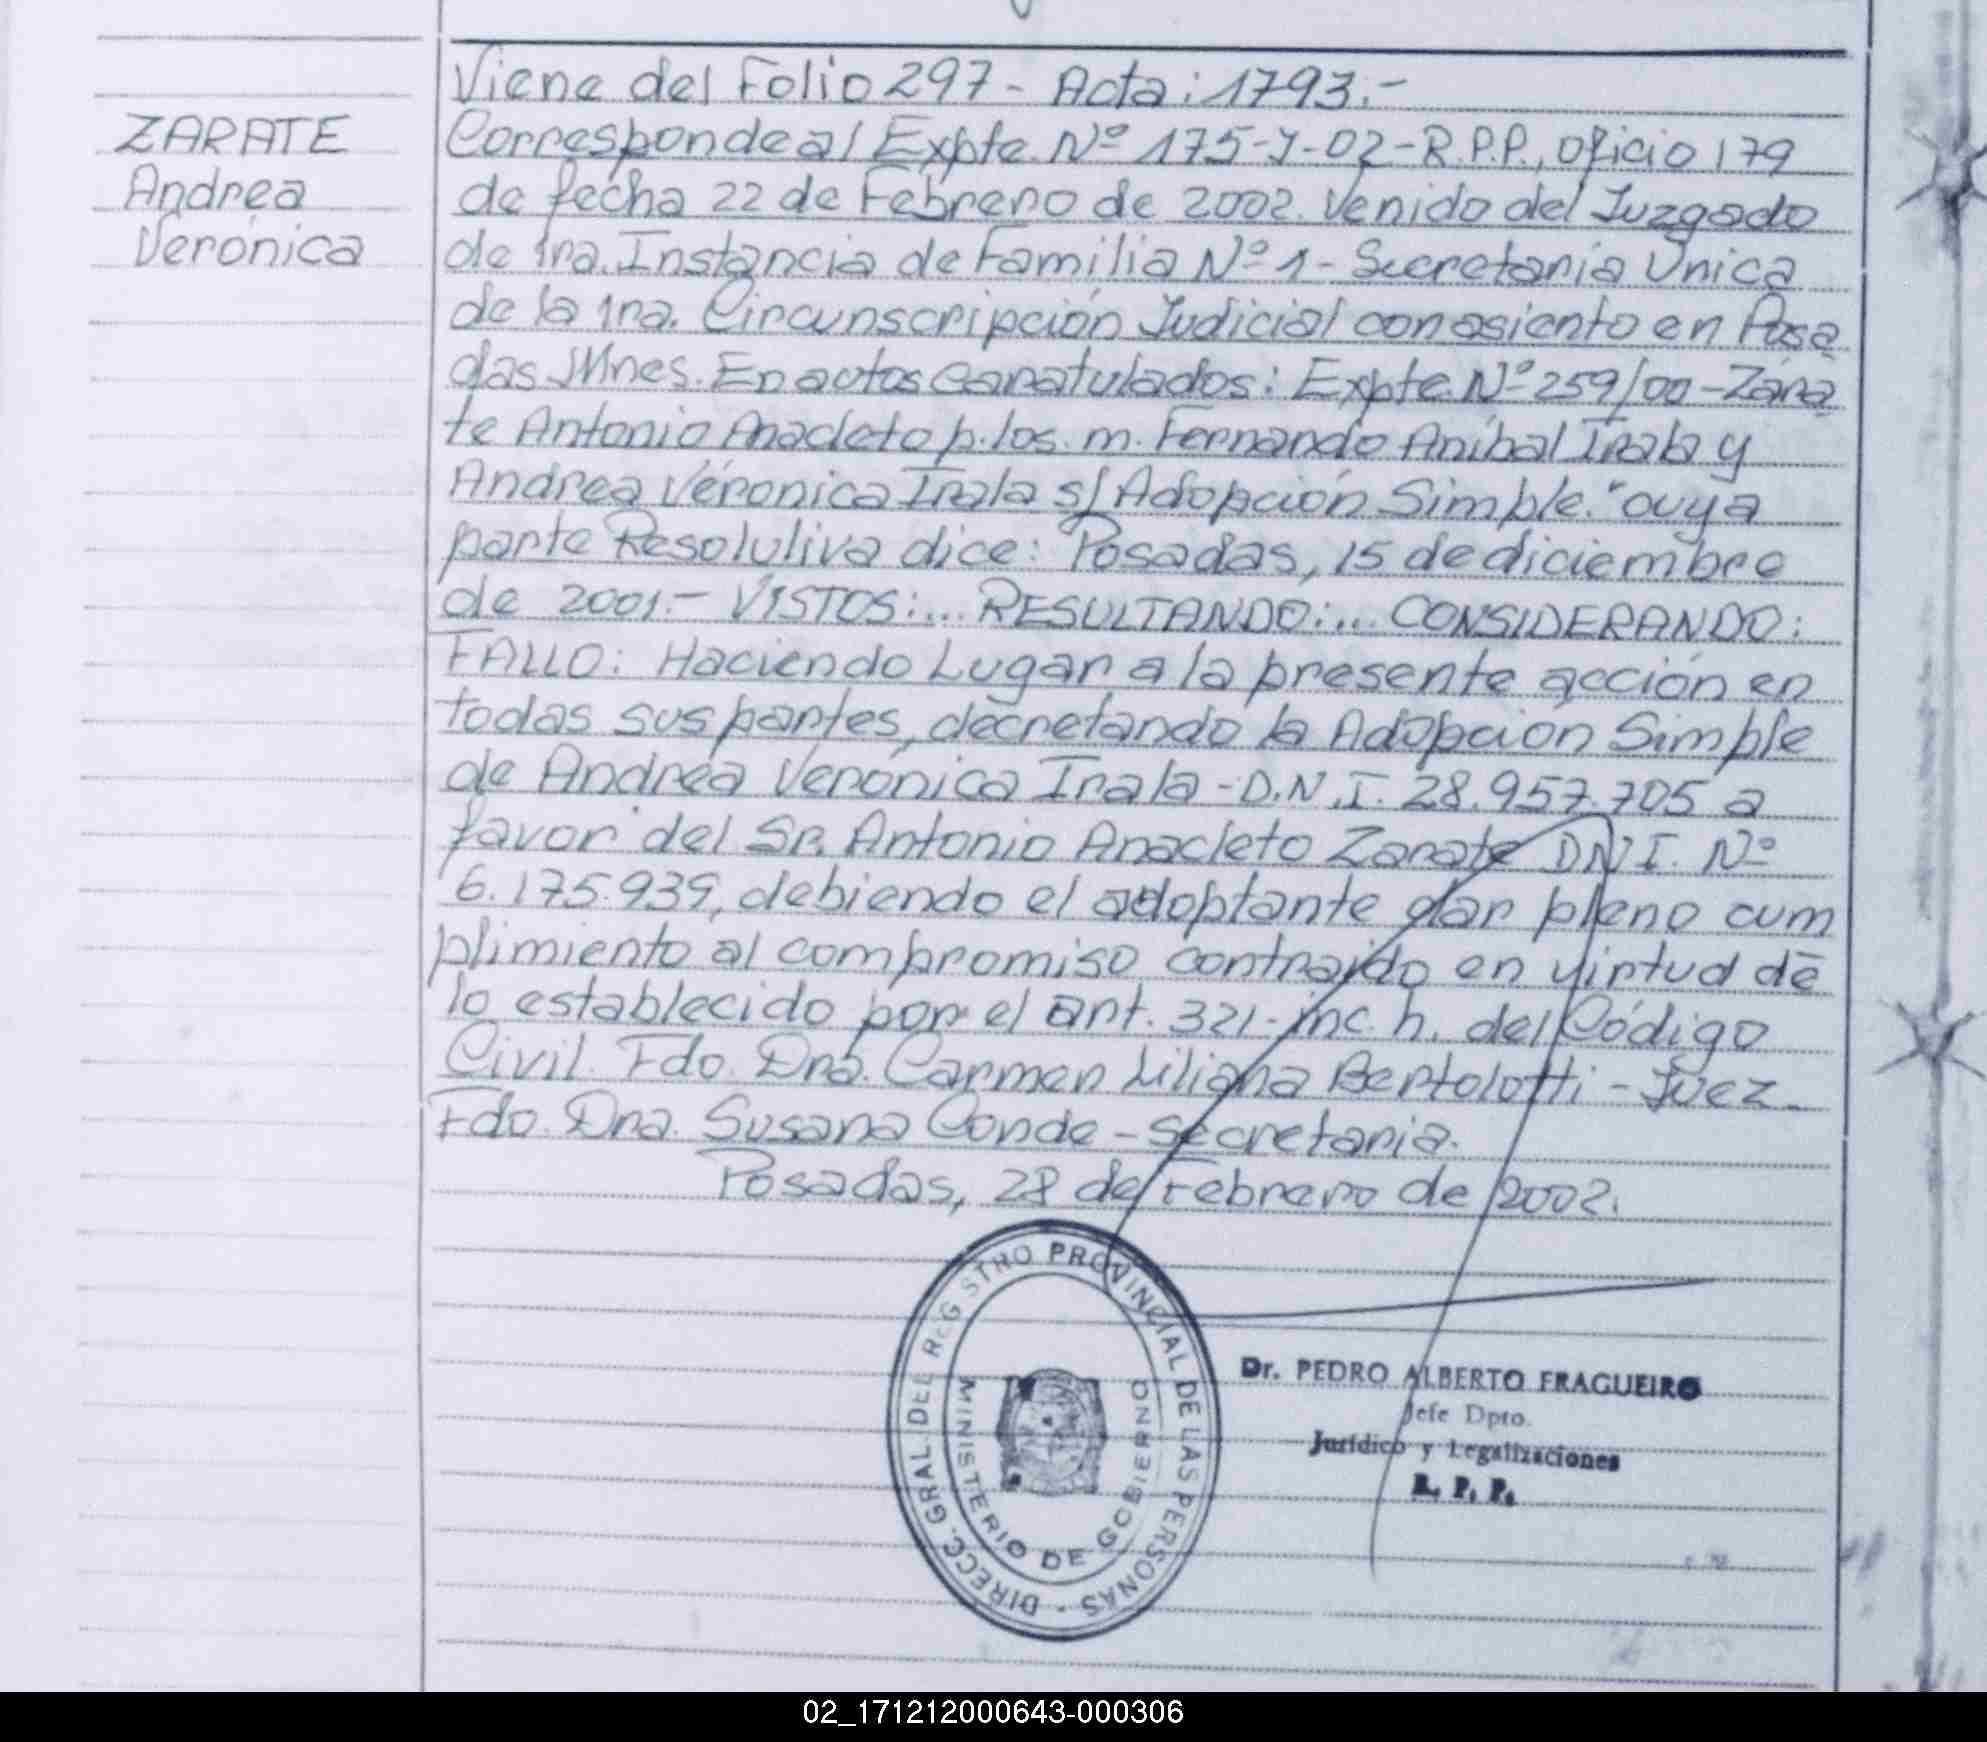 Viene del Folio 297 - Acta: 1793.-
ZARATE
Andrea
Verónica
Corresponde al Expte. Nº 175-Y-02-R.P.P., oficio 179
de fecha 22 de Febrero de 2002. Venido del Juzgado
de 1ra. Instancia de Familia Nº 1 - Secretaría Unica
de la 1ra. Circunscripción Judicial con asiento en Posa
das Mnes. En autos caratulados: Expte. Nº 259/00 - Zára
te Antonio Anacleto p. los. m. Fernando Aníbal Irala y
Andrea Verónica Irala s/ Adopción Simple." cuya
parte Resolutiva dice: Posadas, 15 de diciembre
de 2001.- VISTOS:... RESULTANDO:... CONSIDERANDO:
FALLO: Haciendo Lugar a la presente acción en
todas sus partes, decretando la Adopcion Simple
de Andréa Verónica Irala - D.N.I. 28.957.705 a
favor del Sr. Antonio Anacleto Zarate DNI. Nº
6.175.939, debiendo el adoptante dar pleno cum
plimiento al compromiso contraido en virtud de
lo establecido por el art. 321 - inc. h. del Código
Civil. Fdo. Dra. Carmen Liliana Bertolotti - Juez.
Fdo. Dra. Susana Conde - secretaria.
Posadas, 28 de Febrero de 2002.
DIRECC. GRAL. DEL REGISTRO PROVINCIAL DE LAS PERSONAS -
MINISTERIO DE GOBIERNO
Dr. PEDRO ALBERTO FRAGUEIRO
Jefe Dpto.
Jurídico y Legalizaciones
R. P. P.
02_171212000643-000306